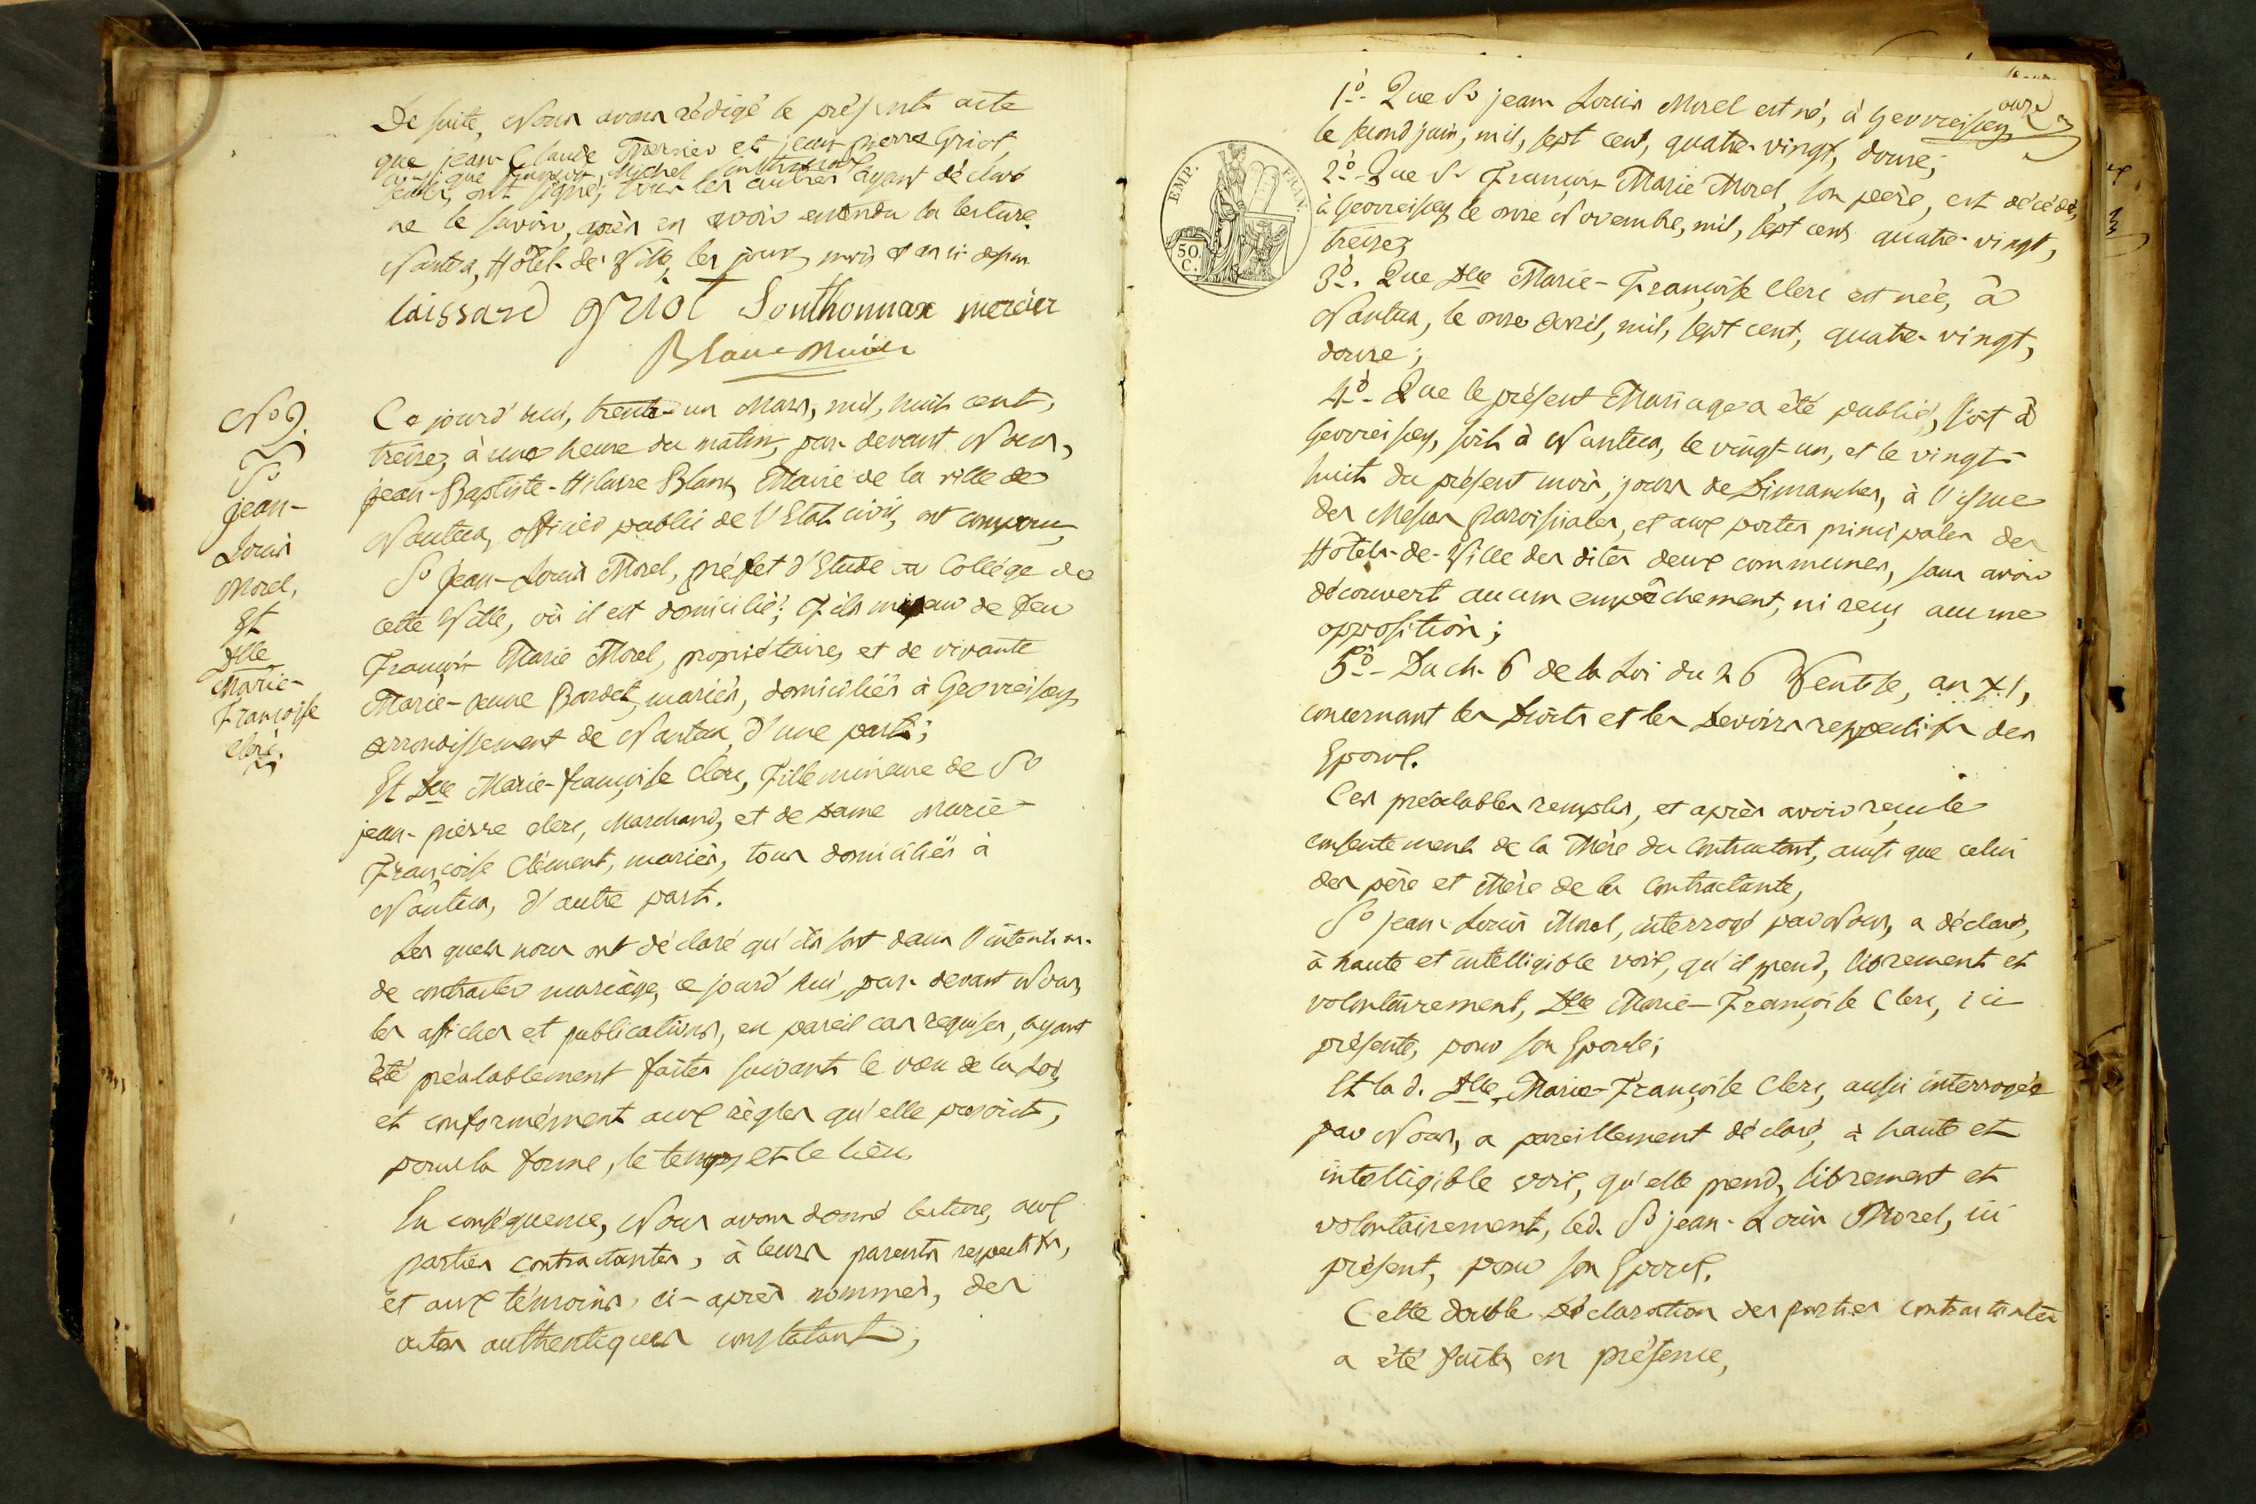 De suite, Nous avons rédigé le présent acte
que jean-Claude Mercier et jean pierre Griot,
ainsi que Michel Southonnax
seuls, ont signé, tous les autres ayant déclaré
ne le savoir, après en avoir entendu la lecture.
Nantua, Hôtel-de-Ville, les jour, mois et an ci-dessus
laissard Griot Southonnax mercier
Blanc Maire
No 9.
Sr
jean-
Louis
Morel,
Et
Dlle
Marie-
Françoise
Clerc.
Ce jourd'hui, trente-un Mars, mil, huit cent,
treize, à une heure du matin, par-devant Nous,
jean-Baptiste-Hilaire Blanc, Maire de la ville de
Nantua, officier public de l'Etat civil, ont comparu,
Sr Jean-Louis Morel, préfet d'Etude au Collége de
cette Ville, où il est domicilié; Fils mineur de feu
François Marie Morel, propriétaire, et de vivante
Marie-Jeanne Bardet, mariés, domiciliés à Geovreisey,
arrondissement de Nantua, d'une part;
Et Dlle Marie-françoise Clerc, Fille mineure de Sr
jean-pierre clerc, Marchand, et de Dame Marie-
Françoise Clément, mariés, tous domiciliés à
Nantua, d'autre part.
Les quels nous ont déclaré qu'ils sont dans l'intention
de contracter mariage, ce jourd'hui, par-devant Nous,
les affiches et publications, en pareil cas requises, ayant
été préalablement faites suivant le vœu de la Loi,
et conformément aux règles qu'elle prescrit,
pour la forme, le temps et le lieu.
En conséquence, Nous avons donné lecture, aux
parties contractantes, à leurs parents respectifs,
et aux témoins, ci-après nommés, des
actes authentiques constatant;
EMP. FRAN.
50.
C.
1o.- Que Sr jean Louis Morel est né, à Geovreisey,
le second juin, mil, sept cent, quatre-vingt, douze;
onze
2o.- Que Sr François Marie Morel, son père, est décédé,
à Geovreisey, le onze Novembre, mil, sept cent quatre-vingt,
treize;
3o.- Que Dlle Marie-Françoise Clerc est née, à
Nantua, le onze Avril, mil, sept cent, quatre-vingt,
douze;
4o.- Que le présent Mariage a été publié, soit à
Geovreisey, soit à Nantua, le vingt-un, et le vingt-
huit du présent mois, jours de Dimanches, à l'issue
des Messes Paroissiales, et aux portes principales des
Hôtels-de-Ville des dites deux communes, sans avoir
découvert aucun empêchement, ni reçu aucune
opposition;
5o.- Du ch. 6 de la Loi du 26 Ventôse, an XI,
concernant les Droits et les Devoirs respectifs des
Epoux.
Ces préalables remplis, et après avoir reçu le
consentement de la Mère du Contractant, ainsi que celui
des père et Mère de la Contractante,
Sr jean-Louis Morel, interrogé par Nous, a déclaré,
à haute et intelligible voix, qu'il prend, librement et
volontairement, Dlle Marie-Françoise Clerc, ici
présente, pour son Epouse;
Et la d. Dlle Marie-Françoise Clerc, aussi interrogée
par Nous, a pareillement déclaré, à haute et
intelligible voix, qu'elle prend, librement et
volontairement, led. Sr jean-Louis Morel, ici
présent, pour son Epoux.
Cette double Déclaration des parties contractantes
a été faite, en présence,